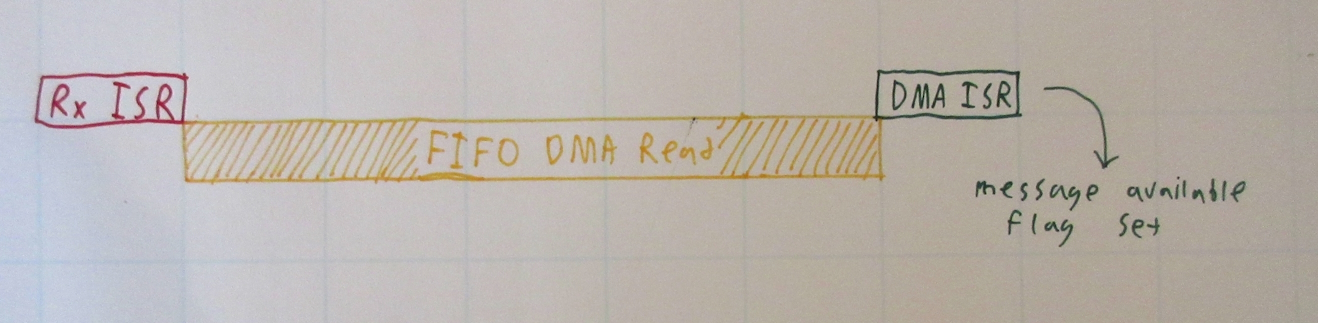 Rx ISR
FIFO DMA Read
DMA ISR
message available
flag set